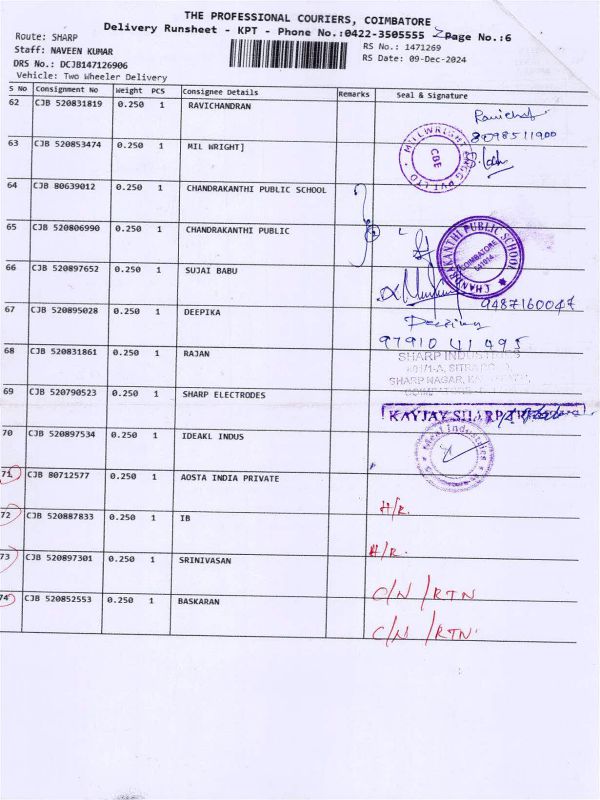 THE PROFESSIONAL COURIERS, COIMBATORE
Delivery Runsheet - KPT - Phone No.:0422-3505555 Page No.:6
Route: SHARP
RS No.: 1471269
Staff: NAVEEN KUMAR
RS Date: 09-Dec-2024
DRS No.: DCJB147126906
Vehicle: Two Wheeler Delivery
S No Consignment No Weight PCS Consignee Details Remarks Seal & Signature
62 CJB 520831819 0.250 1 RAVICHANDRAN
8098511900
63 CJB 520853474 0.250 1 MIL WRIGHT]
MILLWRIGHT ENGG PVT LTD
CBE
64 CJB 80639012 0.250 1 CHANDRAKANTHI PUBLIC SCHOOL
65 CJB 520806990 0.250 1 CHANDRAKANTHI PUBLIC
CHANDRAKANTHI PUBLIC SCHOOL
COIMBATORE
66 CJB 520897652 0.250 1 SUJAI BABU
9487160047
67 CJB 520895028 0.250 1 DEEPIKA
97910 41 495
68 CJB 520831861 0.250 1 RAJAN
SHARP INDUSTRIES
SHARP NAGAR,
69 CJB 520790523 1 0.250 1 SHARP ELECTRODES
KAYJAY SHARP
70 CJB 520897534 0.250 1 IDEAKL INDUS
Ideal Industries
71 CJB 80712577 0.250 1 AOSTA INDIA PRIVATE
H/R.
72 CJB 520887833 0.250 1 IB
H/R.
73 CJB 520897301 0.250 1 SRINIVASAN
C/N /RTN
74 CJB 520852553 0.250 1 BASKARAN
C/N /RTN